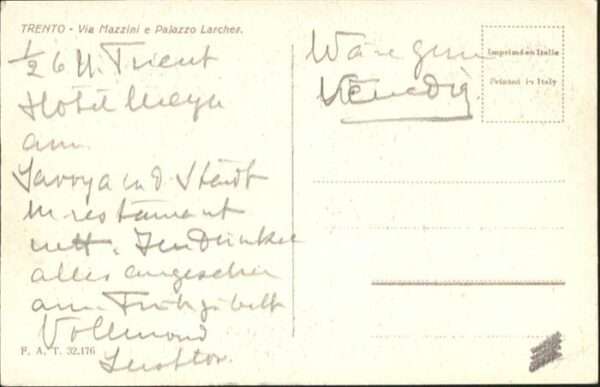 TRENTO - Via Mazzini e Palazzo Larcher.
½ 6 U. Trient
Hotel
am
Savoya und Städt
restaurant
nett. Im Dunkel
alles angesehen
am
Vollmond
F. A. T. 32.176
Wäre gern
Venedig.
Imprimé en Italie
Printed in Italy